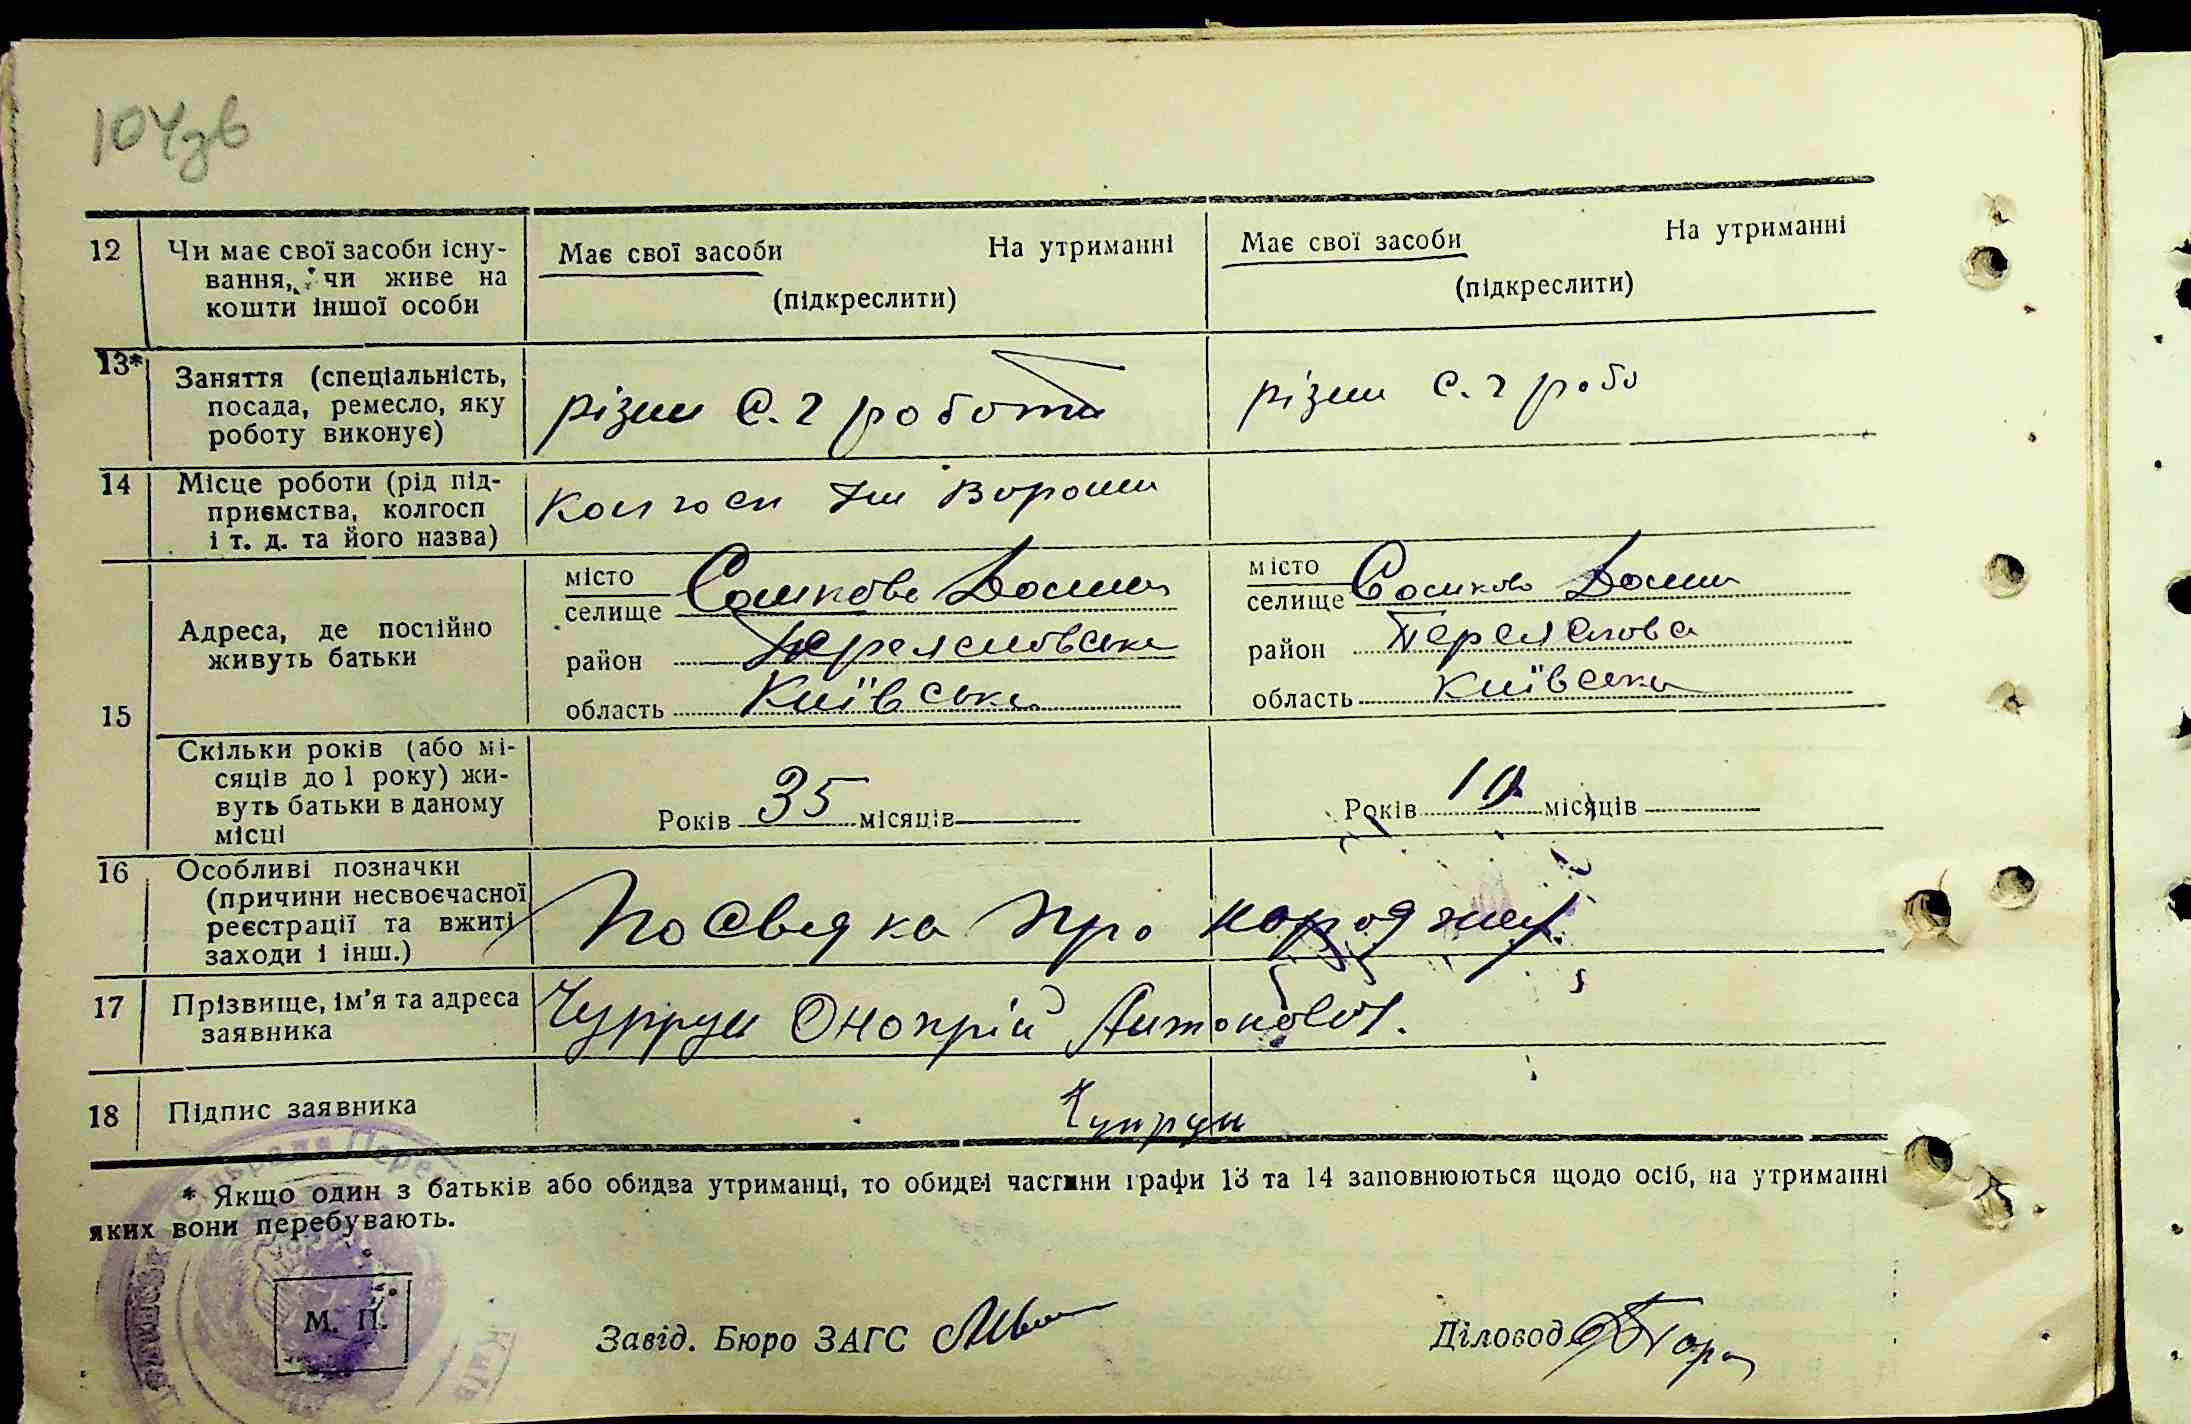 104зв
12 Чи має свої засоби існу- Має свої засоби На утриманні Має свої засоби На утриманні
вання, чи живе на
кошти іншої особи (підкреслити) (підкреслити)
13* Заняття (спеціальність,
посада, ремесло, яку різни с.г роботи різни с.г робо
роботу виконує)
14 Місце роботи (рід під-
приємства, колгосп Колгосп Ім Вороши
і т. д. та його назва)
15 Адреса, де постійно
живуть батьки
місто
селище Сошкове Долини
район Переяславська
область Київська
місто
селище Сошкова Долин
район Переяслова
область Київська
15 Скільки років (або мі-
сяців до 1 року) жи-
вуть батьки в даному
місці
Років 35 місяців Років місяців
16 Особливі позначки
(причини несвоєчасної
реєстрації та вжиті Посвідка про народжен.
заходи і інш.)
17 Прізвище, ім'я та адреса Чупрун Онопрій Антонович.
заявника
18 Підпис заявника Чупрун
* Якщо один з батьків або обидва утриманці, то обидві частини графи 13 та 14 заповнюються щодо осіб, на утриманні
яких вони перебувають.
М. П.
Київ
Завід. Бюро ЗАГС Діловод